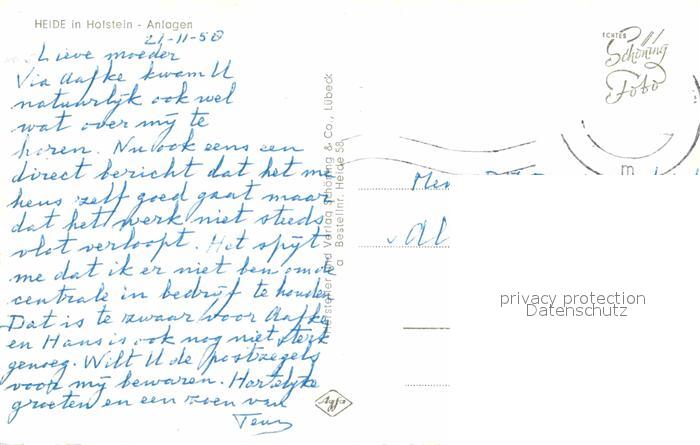 HEIDE in Holstein - Anlagen
21-11-58
Lieve moeder
Via Aafke kwam U
natuurlijk ook wel
wat over mij te
horen. Nu ook eens een
direct bericht dat het me
heus zelf goed gaat maar
dat het werk niet steeds
vlot verloopt. Het spijt
me dat ik er niet ben om de
centrale in bedrijf te houden
Dat is te zwaar voor Aafke
en Hans is ook nog niet sterk
genoeg. Wilt U de postzegels
voor mij bewaren. Hartelijke
groeten en een zoen van
Teun
Agfa
Verlag Schöning & Co., Lübeck
Bestellnr. Heide 58
ECHTES
Schöning
Foto
m
privacy protection
Datenschutz